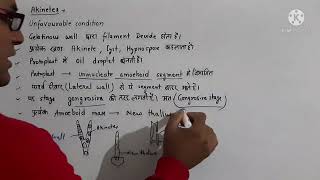 Akinetes
Unfavourable condition
Gelatinous wall द्वारा filament Devide होता है।
प्रत्येक खण्ड Akinete, Cyst, Hypnospore कहलाता है।
Protoplast में oil droplet बनती है।
Protoplast → uninucleate amoeboid segment में विभाजित
पार्श्व दीवार (Lateral wall) से ये segment बाहर आते है।
यह stage gongrosira की तरह लगती है। अतः (Gongrosira stage)
प्रत्येक Amoeboid mass → New thallus
Akinetes
wall
New thallus